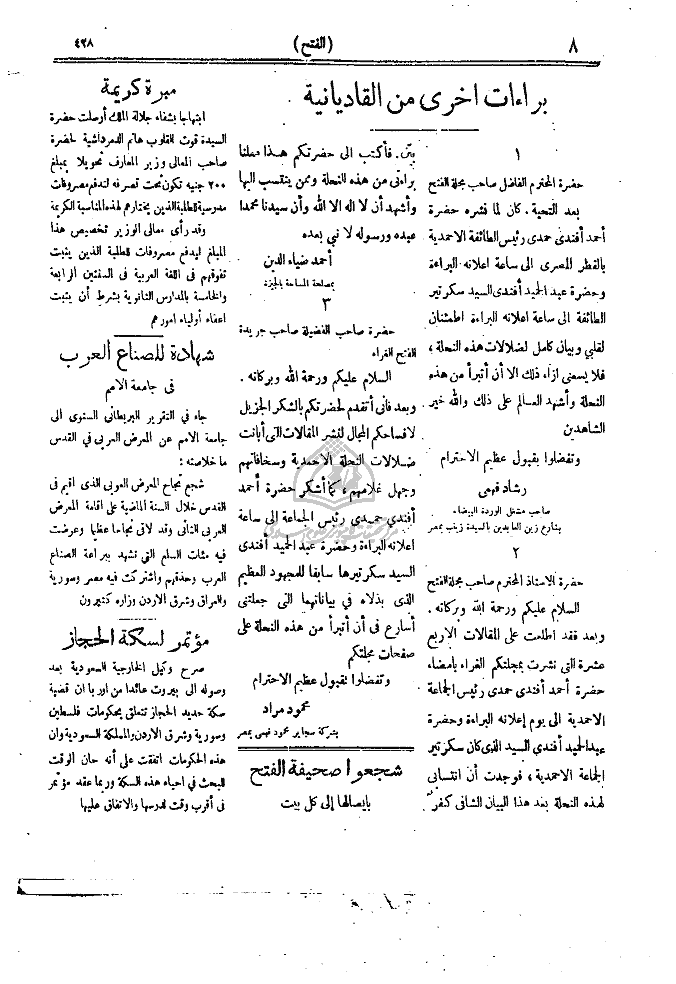 ٨
(الفتح)
٤٢٨
براءات اخرى من القاديانية
١
حضرة المحترم الفاضل صاحب مجلة الفتح
بعد التحية . كان لما نشره حضرة
أحمد أفندي حمدي رئيس الطائفة الاحمدية
بالقطر المصرى الى ساعة اعلانه البراءة
وحضرة عبد الحميد أفندى السيد سكرتير
الطائفة الى ساعة اعلانه البراءة اطمئنان
لقلبي وبيان كامل لضلالات هذه النحلة ،
فلا يسعنى ازاء ذلك الا أن أتبرأ من هذه
النحلة وأشهد العالم على ذلك والله خير
الشاهدين
وتفضلوا بقبول عظيم الاحترام
رشاد فهمى
صاحب مشغل الوردة البيضاء
بشارع زين العابدين بالسيدة زينب بمصر
٢
حضرة الاستاذ المحترم صاحب مجلة الفتح
السلام عليكم ورحمة الله وبركاته .
وبعد فقد اطلعت على المقالات الاربع
عشرة التى نشرت بمجلتكم الغراء بامضاء
حضرة أحمد أفندى حمدى رئيس الجماعة
الاحمدية الى يوم إعلانه البراءة وحضرة
عبد الحميد أفندى السيد الذى كان سكرتير
الجماعة الاحمدية ، فوجدت أن انتسابى
لهذه النحلة بعد هذا البيان الشافى كفر
بيّن . فأكتب الى حضرتكم هذا معلنا
براءتى من هذه النحلة وممن ينتسب اليها
وأشهد أن لا اله الا الله وأن سيدنا محمدا
عبده ورسوله لا نبي بعده
أحمد ضياء الدين
بمصلحة المساحة بالجيزة
٣
حضرة صاحب الفضيلة صاحب جريدة
الفتح الغراء
السلام عليكم ورحمة الله وبركاته .
وبعد فانى أتقدم لحضرتكم بالشكر الجزيل
لافساحكم المجال لنشر المقالات التى أبانت
ضلالات النحلة الاحمدية وسخافاتهم
وجهل غلامهم ، كما أشكر حضرة أحمد
أفندي حمدي رئيس الجماعة الى ساعة
اعلانه البراءة وحضرة عبد الحميد أفندى
السيد سكرتيرها سابقا للمجهود العظيم
الذى بذلاه في بياناتهما التى جعلتنى
أسارع فى أن أتبرأ من هذه النحلة على
صفحات مجلتكم
وتفضلوا بقبول عظيم الاحترام
محمود مراد
بشركة سجاير محمود فهمى بمصر
شجعوا صحيفة الفتح
بايصالها إلى كل بيت
مبرة كريمة
ابتهاجا بشفاء جلالة الملك أرسلت حضرة
السيدة قوت القلوب هانم الدمرداشية لحضرة
صاحب المعالى وزير المعارف تحويلا بمبلغ
٢٠٠ جنيه تكون تحت تصرفه لتدفع مصروفات
مدرسية للطلبة الذين يختارهم لهذه المناسبة الكريمة
وقد رأى معالى الوزير تخصيص هذا
المبلغ ليدفع مصروفات للطلبة الذين يثبت
تفوقهم فى اللغة العربية فى السنتين الرابعة
والخامسة بالمدارس الثانوية بشرط أن يثبت
اعفاء أولياء امورهم
شهادة للصناع العرب
فى جامعة الامم
جاء فى التقرير البريطانى السنوى الى
جامعة الامم عن المعرض العربى فى القدس
ما خلاصته :
شجع نجاح المعرض العربى الذى اقيم فى
القدس خلال السنة الماضية على اقامة المعرض
العربى الثانى وقد لاقى نجاحا عظيما وعرضت
فيه مئات السلع التى تشهد ببراعة الصناع
العرب وحذقهم واشتركت فيه مصر وسورية
والعراق وشرق الاردن وزاره كثيرون
مؤتمر لسكة الحجاز
صرح وكيل الخارجية السعودية بعد
وصوله الى بيروت عائدا من اوربا ان قضية
سكة حديد الحجاز تتعلق بحكومات فلسطين
وسورية وشرق الاردن والمملكة السعودية وان
هذه الحكومات اتفقت على أنه حان الوقت
للبحث فى احياء هذه السكة وربما عقد مؤتمر
فى أقرب وقت لدرسها والاتفاق عليها